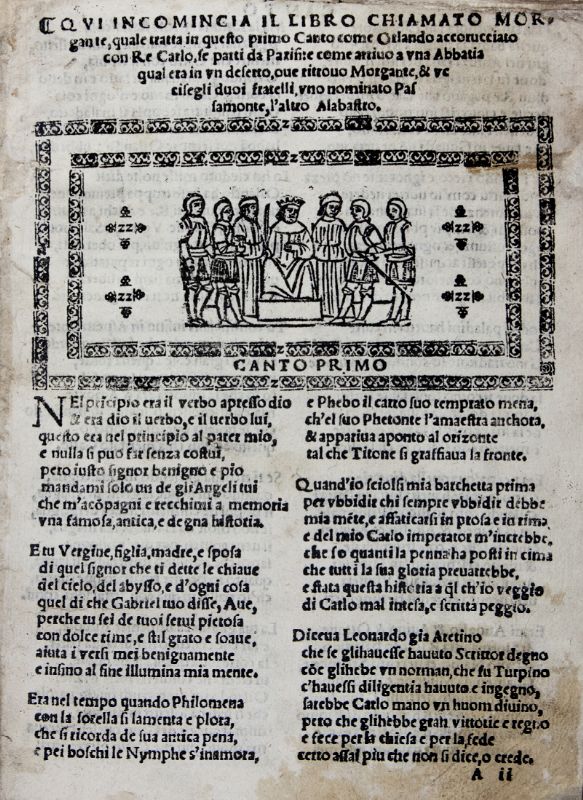 QVI INCOMINCIA IL LIBRO CHIAMATO MOR-
gante, quale tratta in questo primo Canto come Orlando accorucciato
con Re Carlo, se parti da Parisi e come arriuo a vna Abbatia
qual era in vn deserto, oue ritrouo Morgante, & vc
cise gli duoi fratelli, vno nominato Pas
samonte, l'altro Alabastro.
zz zz
zz zz
CANTO PRIMO
NEl prĩcipio era il verbo apresso dio
& era dio il uerbo, e il verbo lui,
questo era nel principio al pater mio,
e nulla si puo far senza costui,
pero iusto signor benigno e pio
mandami solo un de gli Angeli tui
che m'acõpagni e recchimi a memoria
vna famosa, antica, e degna historia.
E tu Vergine, figlia, madre, e sposa
di quel signor che ti dette le chiaue
del cielo, del abysso, e d'ogni cosa
quel di che Gabriel tuo disse, Aue,
perche tu sei de tuoi serui pietosa
con dolce rime, e stil grato e soaue,
aiuta i versi mei benignamente
e insino al fine illumina mia mente.
Era nel tempo quando Philomena
con la sorella si lamenta e plora,
che si ricorda de sua antica pena,
e pei boschi le Nymphe s'inamora,
e Phebo il carro suo temprato mena,
ch'el suo Phetonte l'amaestra anchora,
& appariua aponto al orizonte
tal che Titone si graffiaua la fronte.
Quand'io sciolsi mia barchetta prima
per vbbidir chi sempre vbbidir debbe
mia mẽte, e affaticarsi in prosa e in rima
e del mio Carlo imperator m'increbbe,
che so quanti la penna ha posti in cima
che tutti la sua gloria preuarrebbe,
e stata questa historia a q̃l ch'io veggio
di Carlo mal intesa, e scritta peggio.
Diceua Leonardo gia Aretino
che se gli hauesse hauuto Scrittor degno
cõe gli hebe vn norman, che fu Turpino
c'hauessi diligentia hauuto e ingegno,
sarebbe Carlo mano vn huom diuino,
pero che gli hebbe gran vittorie e regno
e fece per la chiesa e per la fede
certo assai piu che non si dice, o crede.
A ii